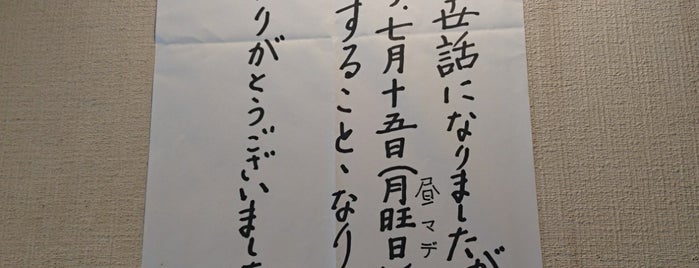 世話になりましたが
七月十五日(月旺日)
昼マデ
すること、なり
りがとうございました